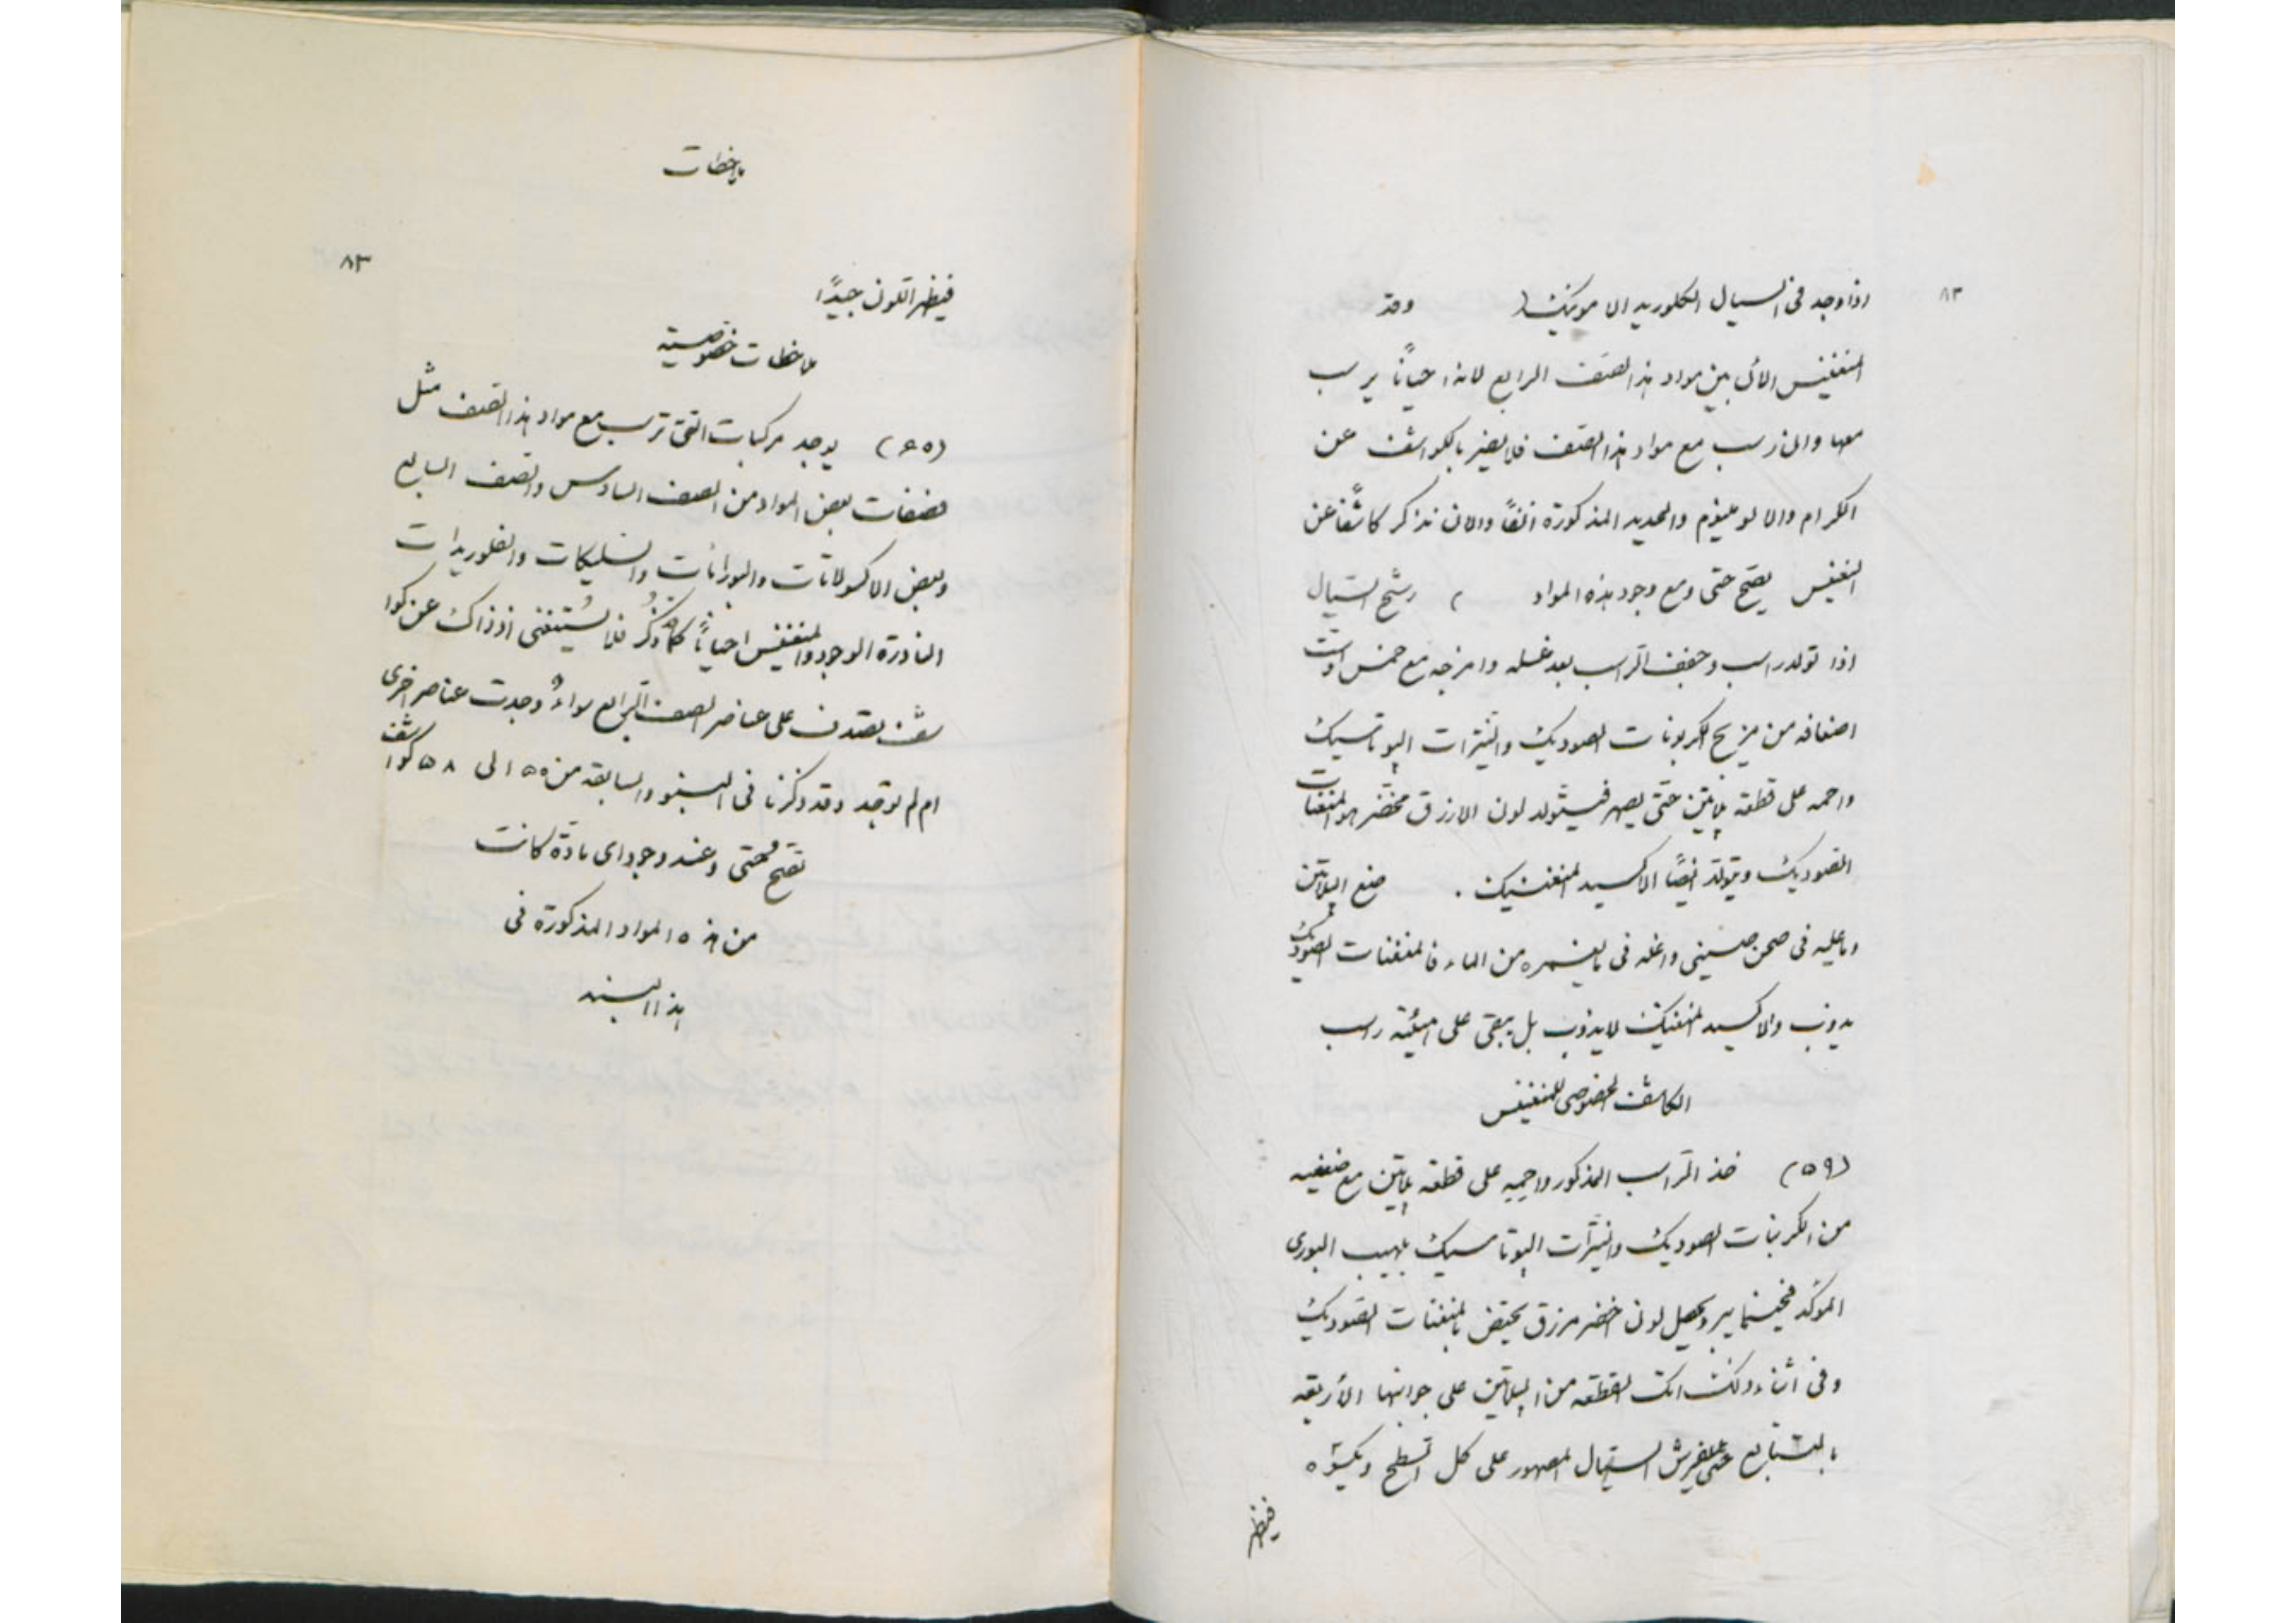 ٨٣
اذا وجد فى السيال الكلوريد الامونيك) وقد
المنغنيس الآتى بين مواد هذا الصنف الرابع لانه احيانًا يرسب
معها وان رسب مع مواد هذا الصنف فلا يضر بالكواشف عن
الكرام والالومينيوم والحديد المذكورة انفًا والان نذكر كاشفًا عن
المنغنيس يصح حتى ومع وجود هذه المواد رشح السيال
اذا تولد راسب وجفف الراسب بعد غسله وامزجه مع خمس اوست
اضعافه من مزيج الكربونات الصوديك والنيترات البوتاسيك
واحمه على قطعة پلاتين حتى يصهر فيتولد لون الازرق مخضر هو المنغنات
الصوديك ويتولد ايضًا الاكسيد المنغنيك . ضع الپلاتين
وما عليه فى صحن صينى واغله فى ما يغمره من الماء فالمنغنات الصوديك
يذوب والاكسيد المنغنيك لا يذوب بل يبقى على هيئة راسب
الكاشف الخصوصى للمنغنيس
(٥٩) خذ الراسب المذكور واحميه على قطعه پلاتين مع ضعفيه
من الكربنات الصوديك والنيترات الپوتاسيك بلهيب البورى
الموكد فحينما يبرد يحصل لون اخضر مزرق يختص بالمنغنات الصوديك
وفى اثناء ذلك القطعه من الپلاتين على جوانبها الأربعه
بالتتابع حتى يفرش السيال المصهور على كل السطح ويكسوه
فيظهر
ملاحظات
٨٣
فيظهر اللون جيدًا
ملاحظات خصوصية
(٦٥) يوجد مركبات التى ترسب مع مواد هذا الصنف مثل
فصفات بعض المواد من الصنف السادس والصنف السابع
وبعض الاكسولاتات والبورانات والسليكات والفلوريدات
النادرة الوجود والمنغنيس احيانًا كما ذكر فلا يستغنى اذ ذاك عن كوا
شف يصدقن على عناصر الصنف الرابع سواءٌ وجدت عناصر اخرى
ام لم توجد وقد ذكرنا فى البنود السابقه من ٥٥ الى ٥٨ كواشف
تصح حتى وعند وجود اى مادة كانت
من هذه المواد المذكورة فى
هذا البند